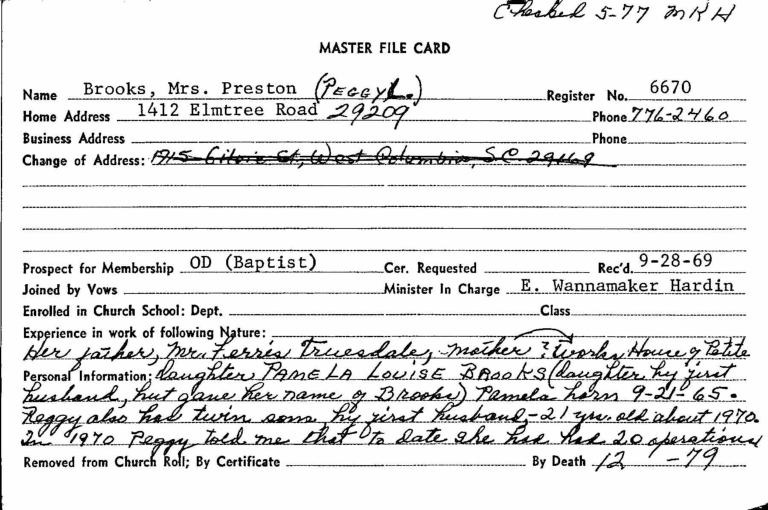 Checked 5-77 MKH
MASTER FILE CARD
Name Brooks, Mrs. Preston (PEGGY L.) Register No. 6670
Home Address 1412 Elmtree Road 29209 Phone 776-2460
Business Address Phone
Change of Address: 1915 Ct, West Columbia, S.C. 29169
Prospect for Membership OD (Baptist) Cer. Requested Rec'd. 9-28-69
Joined by Vows Minister In Charge E. Wannamaker Hardin
Enrolled in Church School: Dept. Class
Experience in work of following Nature:
Her father, Mr. Ferris Truesdale, mother ? works House of Petite
Personal Information: daughter PAMELA LOUISE BROOKS (daughter by first
husband, but gave her name of Brooks) Pamela born 9-21-65.
Peggy also had twin sons by first husband - 21 yrs. old about 1970.
In 1970 Peggy told me that to date she had had 20 operations
Removed from Church Roll; By Certificate By Death 12 -79